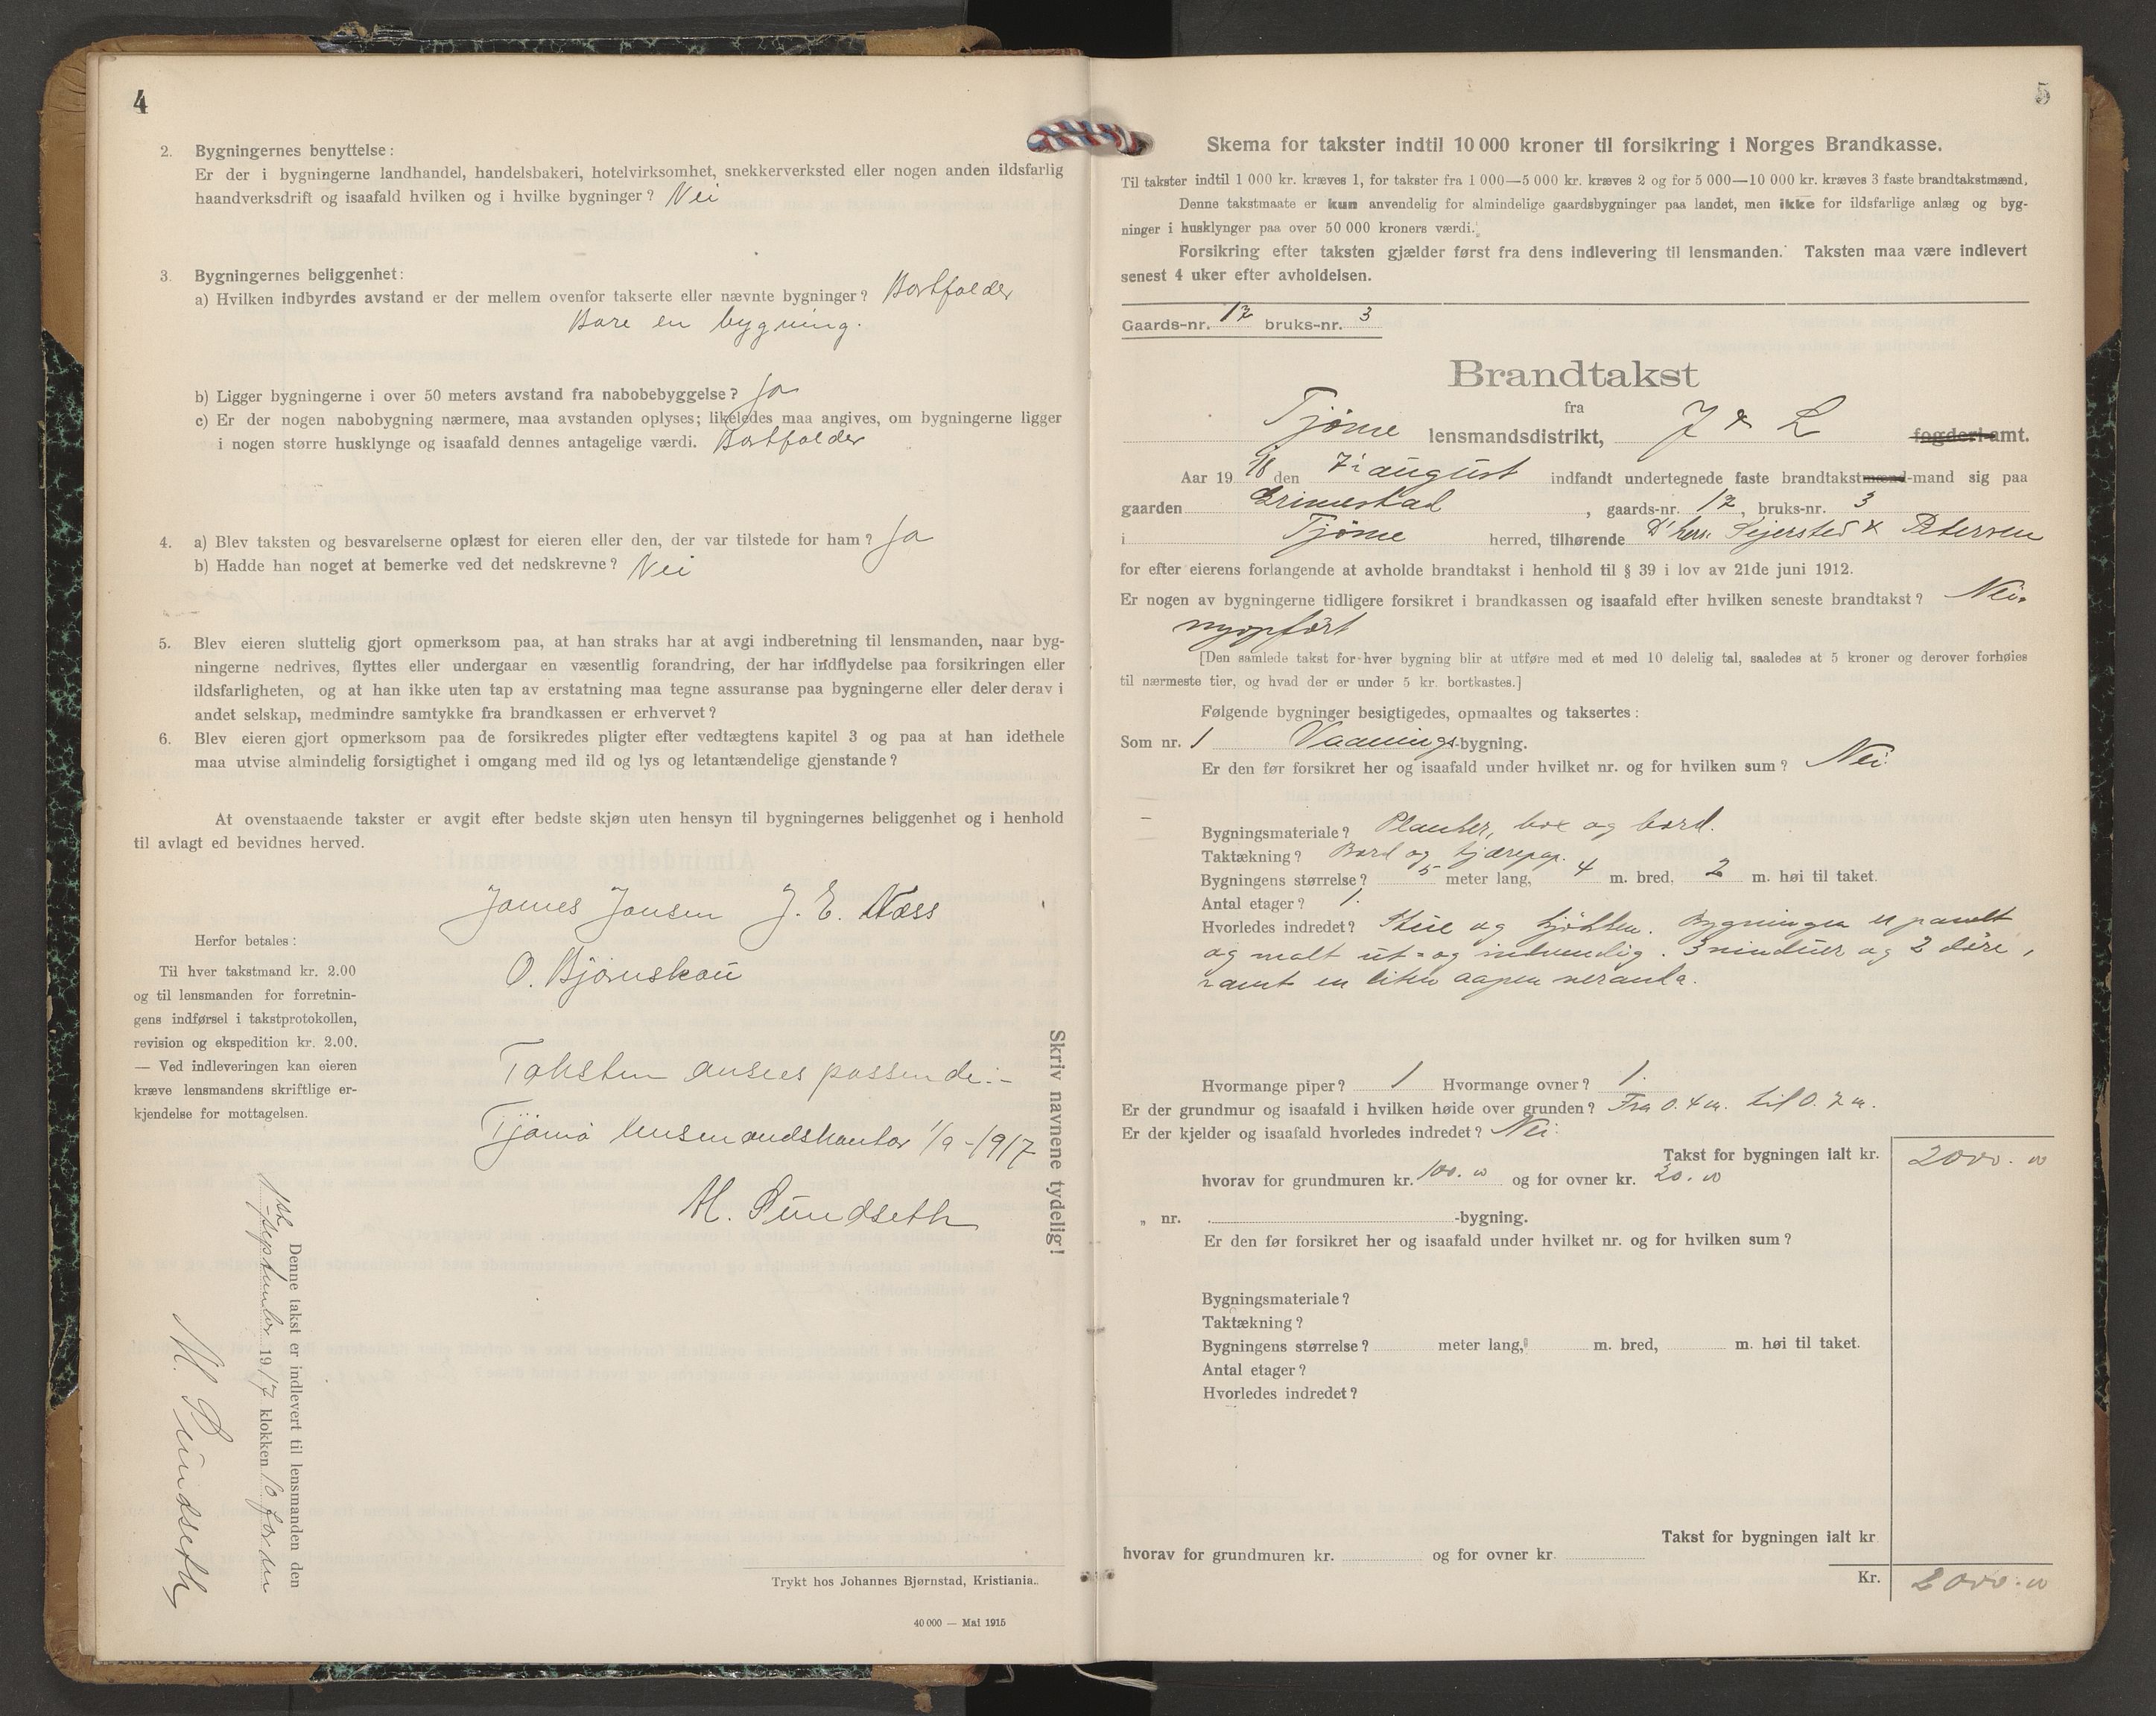 4
2. Bygningernes benyttelse:
Er der i bygningerne landhandel, handelsbakeri, hotelvirksomhet, snekkerverksted eller nogen anden ildsfarlig
haandverksdrift og isaafald hvilken og i hvilke bygninger? Nei
3. Bygningernes beliggenhet:
a) Hvilken indbyrdes avstand er der mellem ovenfor takserte eller nævnte bygninger? Bortfalder
Bare en bygning.
b) Ligger bygningerne i over 50 meters avstand fra nabobebyggelse? Ja
c) Er der nogen nabobygning nærmere, maa avstanden oplyses; likeledes maa angives, om bygningerne ligger
i nogen større husklynge og isaafald dennes antagelige værdi. Bortfalder
4. a) Blev taksten og besvarelserne oplæst for eieren eller den, der var tilstede for ham? Ja
b) Hadde han noget at bemerke ved det nedskrevne? Nei
5. Blev eieren sluttelig gjort opmerksom paa, at han straks har at avgi indberetning til lensmanden, naar byg-
ningerne nedrives, flyttes eller undergaar en væsentlig forandring, der har indflydelse paa forsikringen eller
ildsfarligheten, og at han ikke uten tap av erstatning maa tegne assuranse paa bygningerne eller deler derav i
andet selskap, medmindre samtykke fra brandkassen er erhvervet?
6. Blev eieren gjort opmerksom paa de forsikredes pligter efter vedtægtens kapitel 3 og paa at han idethele
maa utvise almindelig forsigtighet i omgang med ild og lys og letantændelige gjenstande?
At ovenstaaende takster er avgit efter bedste skjøn uten hensyn til bygningernes beliggenhet og i henhold
til avlagt ed bevidnes herved.
James Jansen J. E. Næss
O. Bjørnskau
Herfor betales:
Til hver takstmand kr. 2.00
og til lensmanden for forretnin-
gens indførsel i takstprotokollen,
revision og ekspedition kr. 2.00.
— Ved indleveringen kan eieren
kræve lensmandens skriftlige er-
kjendelse for mottagelsen.
Taksten ansees passende.-
Tjømø lensmandskontor 1/9-1917
M. Sundseth
Skriv navnene tydelig!
Denne takst er indlevert til lensmanden den
1ste september 1917 klokken 10 form
M. Sundseth
Trykt hos Johannes Bjørnstad, Kristiania.
40 000 — Mai 1915
5
Skema for takster indtil 10 000 kroner til forsikring i Norges Brandkasse.
Til takster indtil 1 000 kr. kræves 1, for takster fra 1 000—5 000 kr. kræves 2 og for 5 000—10 000 kr. kræves 3 faste brandtakstmænd.
Denne takstmaate er kun anvendelig for almindelige gaardsbygninger paa landet, men ikke for ildsfarlige anlæg og byg-
ninger i husklynger paa over 50 000 kroners værdi.
Forsikring efter taksten gjælder først fra dens indlevering til lensmanden. Taksten maa være indlevert
senest 4 uker efter avholdelsen.
Gaards-nr. 17 bruks-nr. 3
Brandtakst
fra
Tjøme lensmandsdistrikt, J & L fogderi-amt.
Aar 1918 den 7i august indfandt undertegnede faste brandtakstmænd-mand sig paa
gaarden Grimestad, gaards-nr. 17, bruks-nr. 3
i Tjøme herred, tilhørende D'herr. Sejersted & Petersen
for efter eierens forlangende at avholde brandtakst i henhold til § 39 i lov av 21de juni 1912.
Er nogen av bygningerne tidligere forsikret i brandkassen og isaafald efter hvilken seneste brandtakst? Nei.
nyopført
[Den samlede takst for hver bygning blir at utføre med et med 10 delelig tal, saaledes at 5 kroner og derover forhøies
til nærmeste tier, og hvad der er under 5 kr. bortkastes.]
Følgende bygninger besigtigedes, opmaaltes og taksertes:
Som nr. 1 Vaanings-bygning.
Er den før forsikret her og isaafald under hvilket nr. og for hvilken sum? Nei.
Bygningsmateriale? Planker, box og bord.
Taktækning? Bord og tjærepap.
Bygningens størrelse? 5 meter lang, 4 m. bred, 2 m. høi til taket.
Antal etager? 1.
Hvorledes indredet? Stue og kjøkken. Bygningen er panelt
og malt ut- og indvendig. 3 vinduer og 2 døre,
samt en liten aapen veranda.
Hvormange piper? 1 Hvormange ovner? 1.
Er der grundmur og isaafald i hvilken høide over grunden? Fra 0.4 m. til 0.7 m.
Er der kjelder og isaafald hvorledes indredet? Nei.
Takst for bygningen ialt kr. 2000.00
hvorav for grundmuren kr. 100.00 og for ovner kr. 20.00
„ nr. -bygning.
Er den før forsikret her og isaafald under hvilket nr. og for hvilken sum?
Bygningsmateriale?
Taktækning?
Bygningens størrelse? meter lang, m. bred, m. høi til taket.
Antal etager?
Hvorledes indredet?
Takst for bygningen ialt kr
hvorav for grundmuren kr. og for ovner kr.
Kr. 2000.00